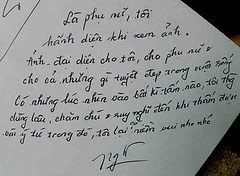 Là phụ nữ, tôi
hãnh diện khi xem ảnh.
Ảnh đại diện cho tôi, cho phụ nữ &
cho cả những gì tuyệt đẹp trong cuộc sống
Có những lúc nhìn vào bất kì tấm nào, tôi
dừng lâu, chăm chú & suy nghĩ đến khi thấm được
vài ý tứ trong đó, tôi lại niềm vui nho nhỏ